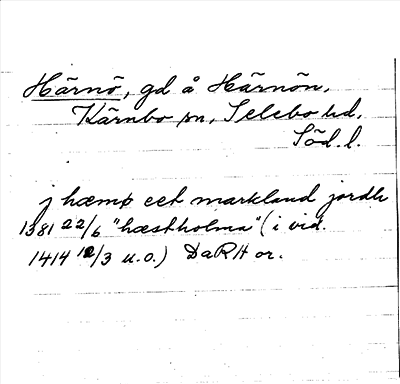 Härnö, gd å Härnön,
Kärnbo sn, Selebo hd,
Söd. l.
j hæmø eet markland jordh
1381 22/6 "hæstholma" (i vid.
1414 12/3 u.o.) DaRH or.